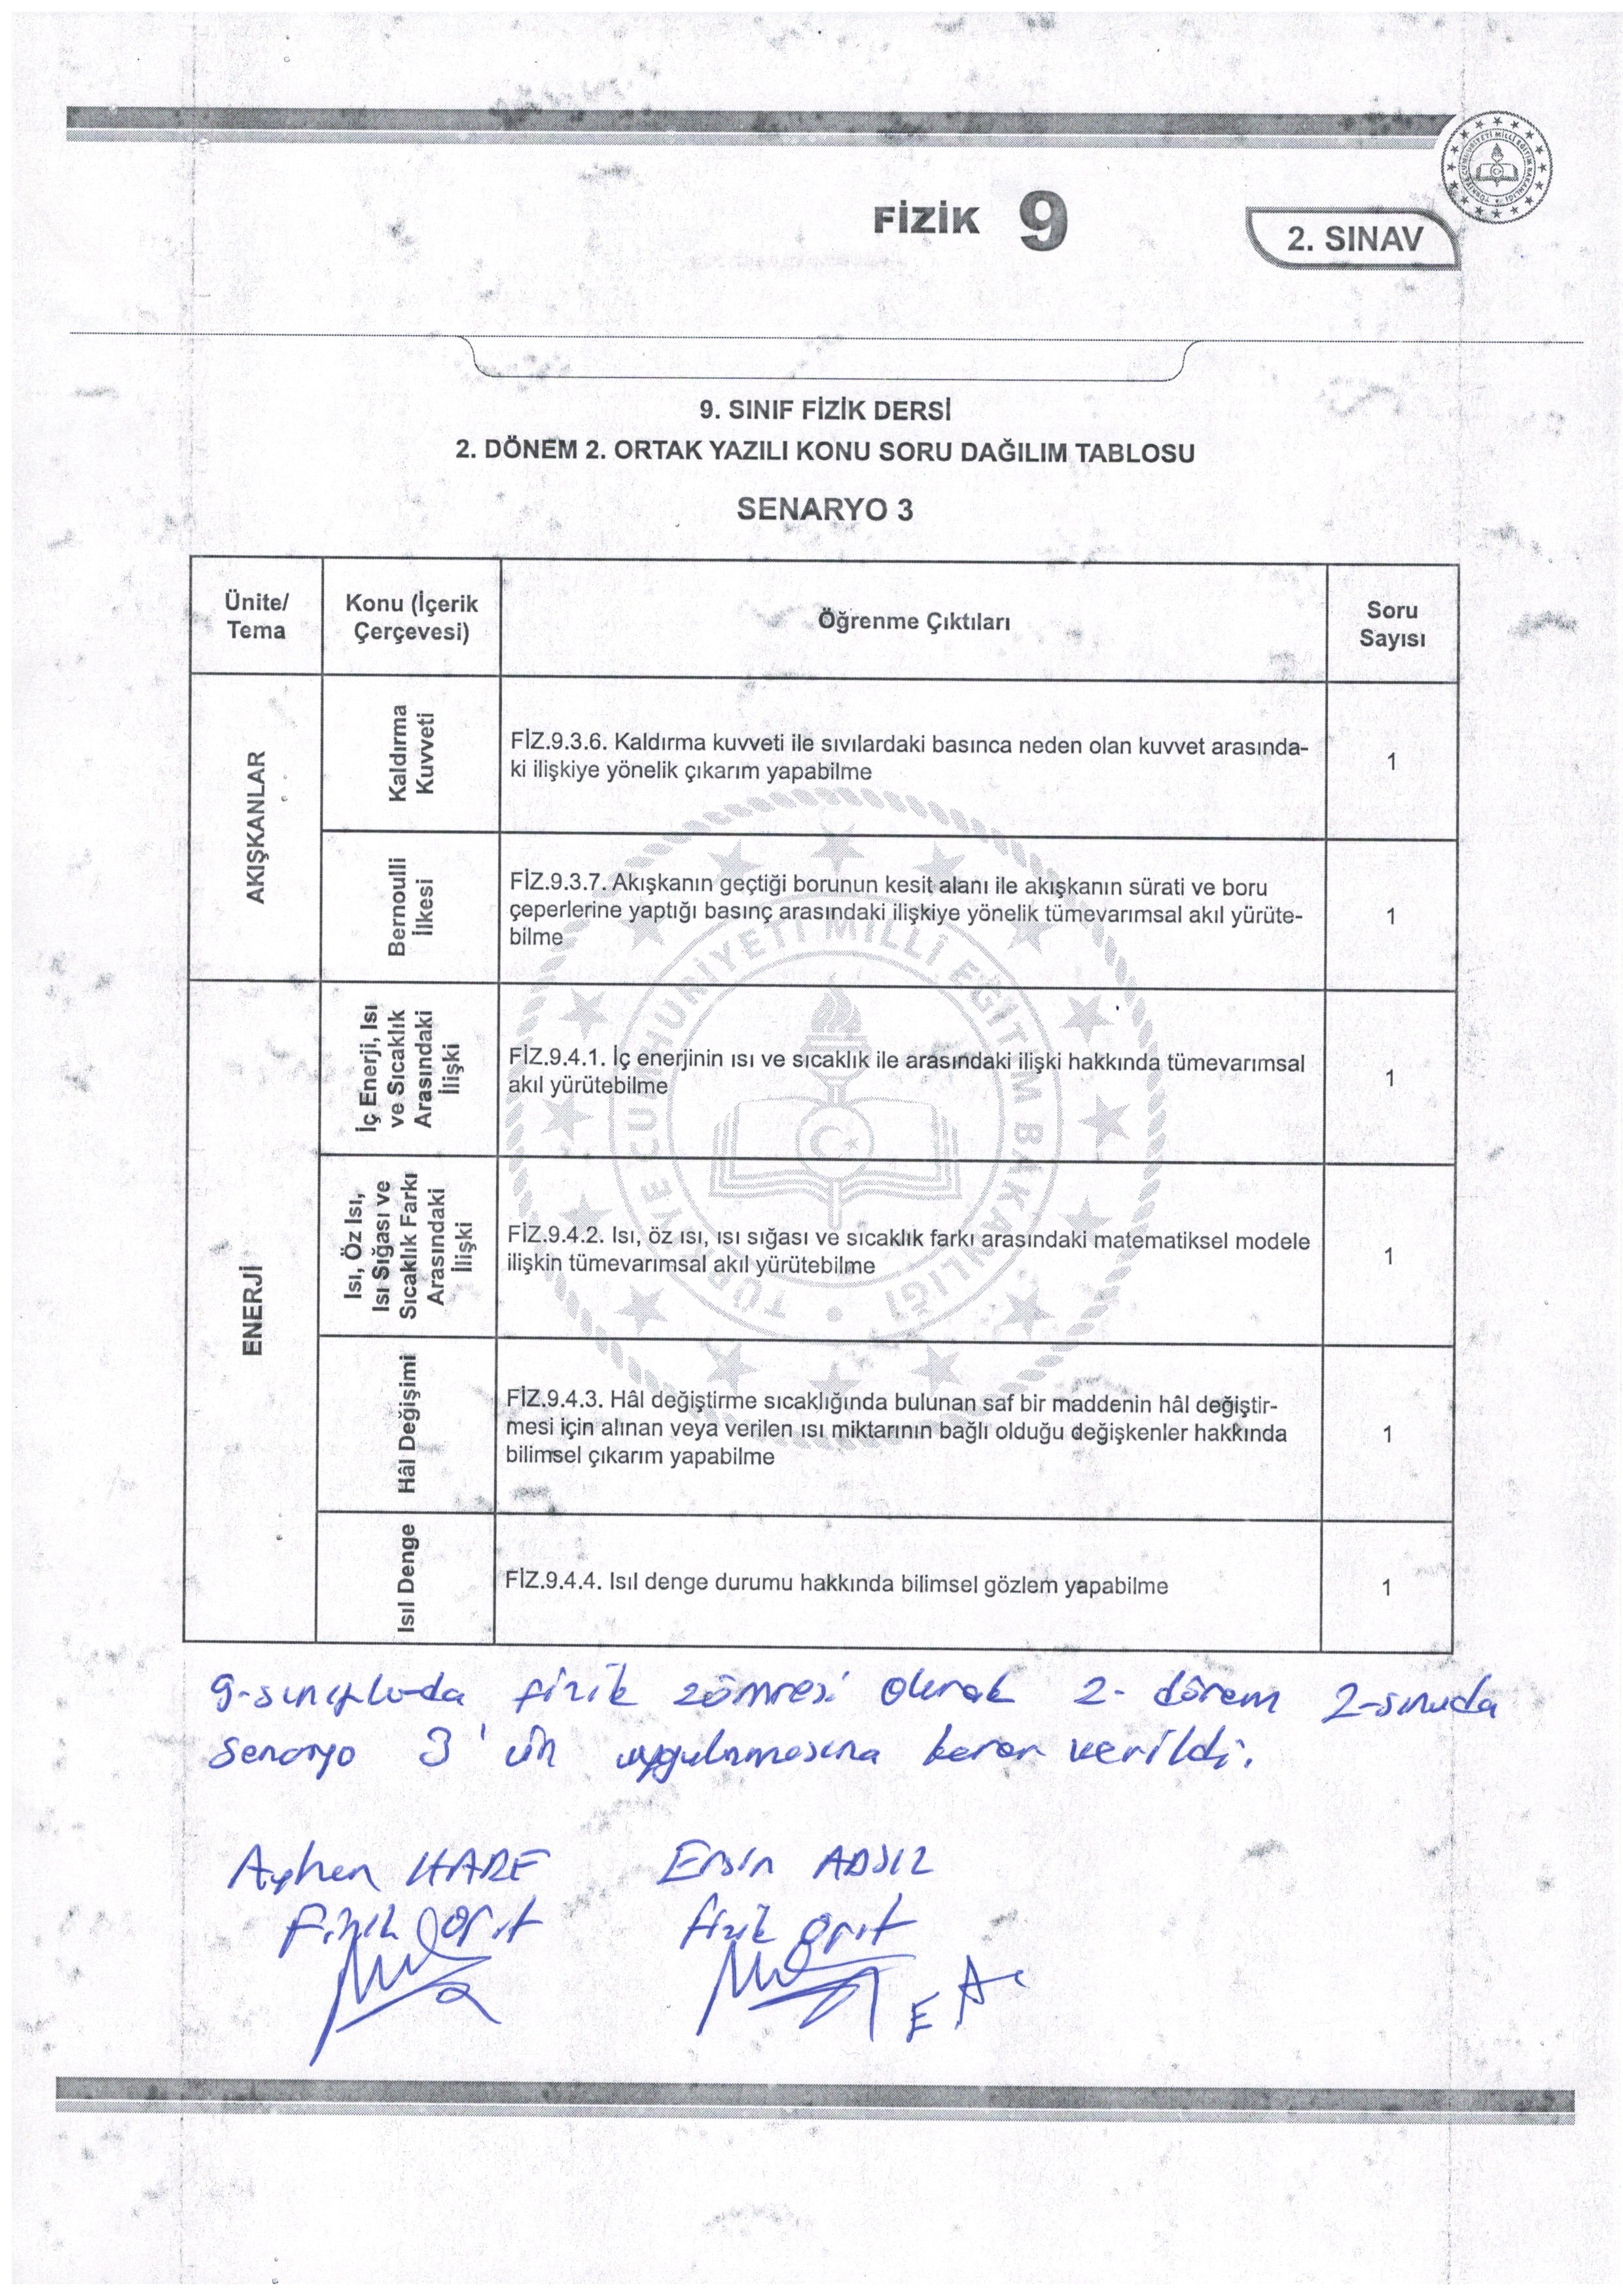 FİZİK 9
2. SINAV
9. SINIF FİZİK DERSİ
2. DÖNEM 2. ORTAK YAZILI KONU SORU DAĞILIM TABLOSU
SENARYO 3
Ünite/
Tema
Konu (İçerik
Çerçevesi)
Öğrenme Çıktıları
Soru
Sayısı
AKIŞKANLAR
Kaldırma
Kuvveti
FİZ.9.3.6. Kaldırma kuvveti ile sıvılardaki basınca neden olan kuvvet arasında-
ki ilişkiye yönelik çıkarım yapabilme
1
Bernoulli
İlkesi
FİZ.9.3.7. Akışkanın geçtiği borunun kesit alanı ile akışkanın sürati ve boru
çeperlerine yaptığı basınç arasındaki ilişkiye yönelik tümevarımsal akıl yürüte-
bilme
1
ENERJİ
İç Enerji, Isı
ve Sıcaklık
Arasındaki
İlişki
FİZ.9.4.1. İç enerjinin ısı ve sıcaklık ile arasındaki ilişki hakkında tümevarımsal
akıl yürütebilme
1
Isı, Öz Isı,
Isı Sığası ve
Sıcaklık Farkı
Arasındaki
İlişki
FİZ.9.4.2. Isı, öz ısı, ısı sığası ve sıcaklık farkı arasındaki matematiksel modele
ilişkin tümevarımsal akıl yürütebilme
1
Hâl Değişimi
FİZ.9.4.3. Hâl değiştirme sıcaklığında bulunan saf bir maddenin hâl değiştir-
mesi için alınan veya verilen ısı miktarının bağlı olduğu değişkenler hakkında
bilimsel çıkarım yapabilme
1
Isıl Denge
FİZ.9.4.4. Isıl denge durumu hakkında bilimsel gözlem yapabilme
1
TÜRKİYE CUMHURİYETİ MİLLİ EĞİTİM BAKANLIĞI
9-sınıflarda fizik zümresi olarak 2- dönem 2-sınavda
Senaryo 3'ün uygulanmasına karar verildi.
Ayhan Ersin
Fizik Öğrt fizik Öğrt
E A